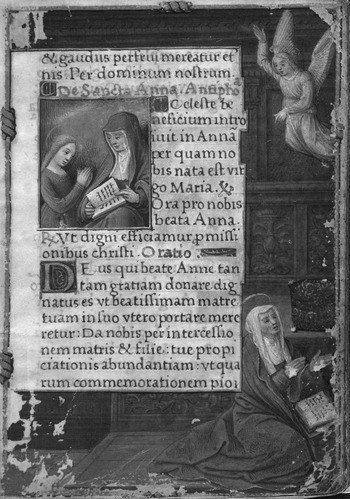 & gaudiis perfrui mereatur et
nis. Per dominum nostrum.
De Sancta Anna. Antipho
Celeste be
neficium intro
iuit in Annā
per quam no
bis nata est vir
go Maria.
Ora pro nobis
beata Anna.
Vt digni efficiamur, p missi
onibus christi. Oratio.
DEus qui beate Anne tan
tam gratiam donare dig
natus es vt beatissimam matrē
tuam in suo vtero portare mere
retur: Da nobis per intercessio
nem matris & filie: tue propi
ciationis abundantiam: vt qua
rum commemorationem pio